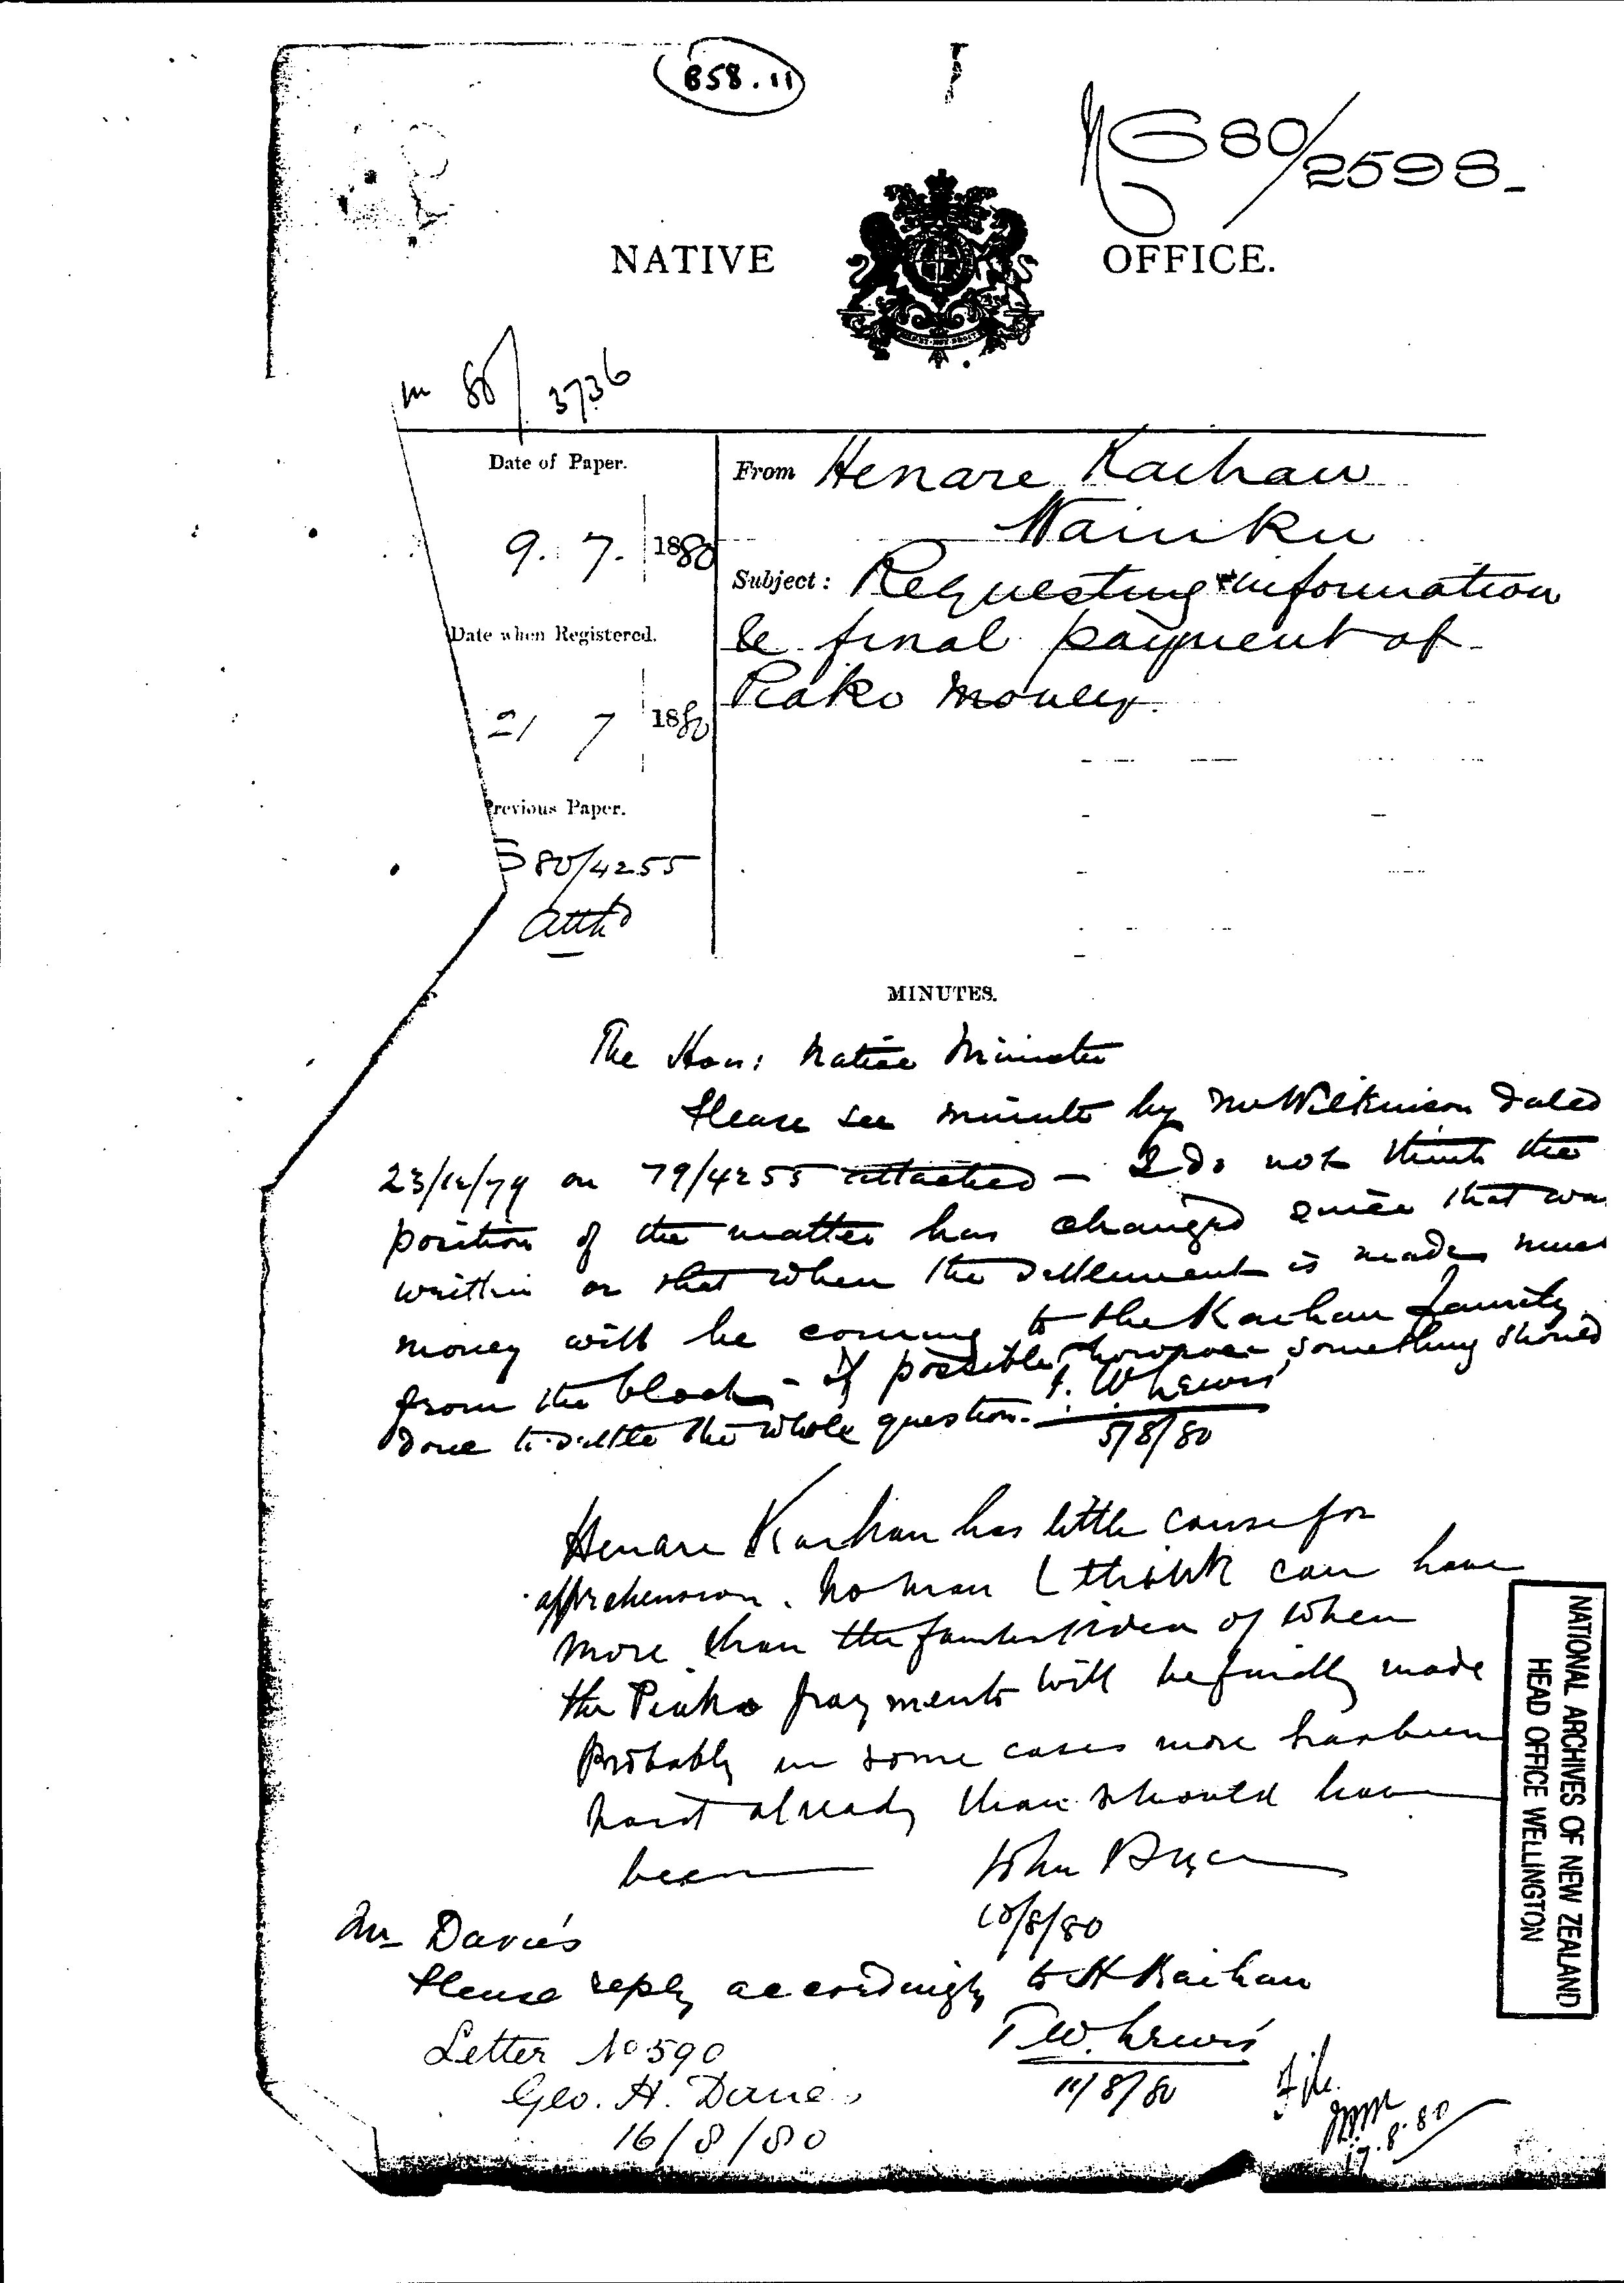 B58.11
NG 80/2598
NATIVE OFFICE.
80/3736
Date of Paper.
9. 7. 1880
Date when Registered.
21 7 1880
Previous Paper.
80/4255
Attd
From Henare Kaihau
Waiuku
Subject: Requesting information
re final payment of
Piako money.
MINUTES.
The Hon: Native Minister
Please see minute by Mr Wilkinson dated
23/12/79 on 79/4255 attached — I do not think the
position of the matter has changed since that wa
written or that when the settlement is made much
money will be coming to the Kaihau family
from the block - if possible however something should
done to settle the whole question. T. W Lewis
5/8/80
Henare Kaihau has little cause for
apprehension. No man I think can have
more than the faintest idea of when
the Piako payments will be finally made
Probably in some cases more has been
paid already than should have
been John Bryce
10/8/80
Mr Davies
Please reply accordingly to H Kaihau
T W. Lewis
11/8/80
Letter No 590
Geo. H. Davies
16/8/80
File.
17.8.80
NATIONAL ARCHIVES OF NEW ZEALAND
HEAD OFFICE WELLINGTON